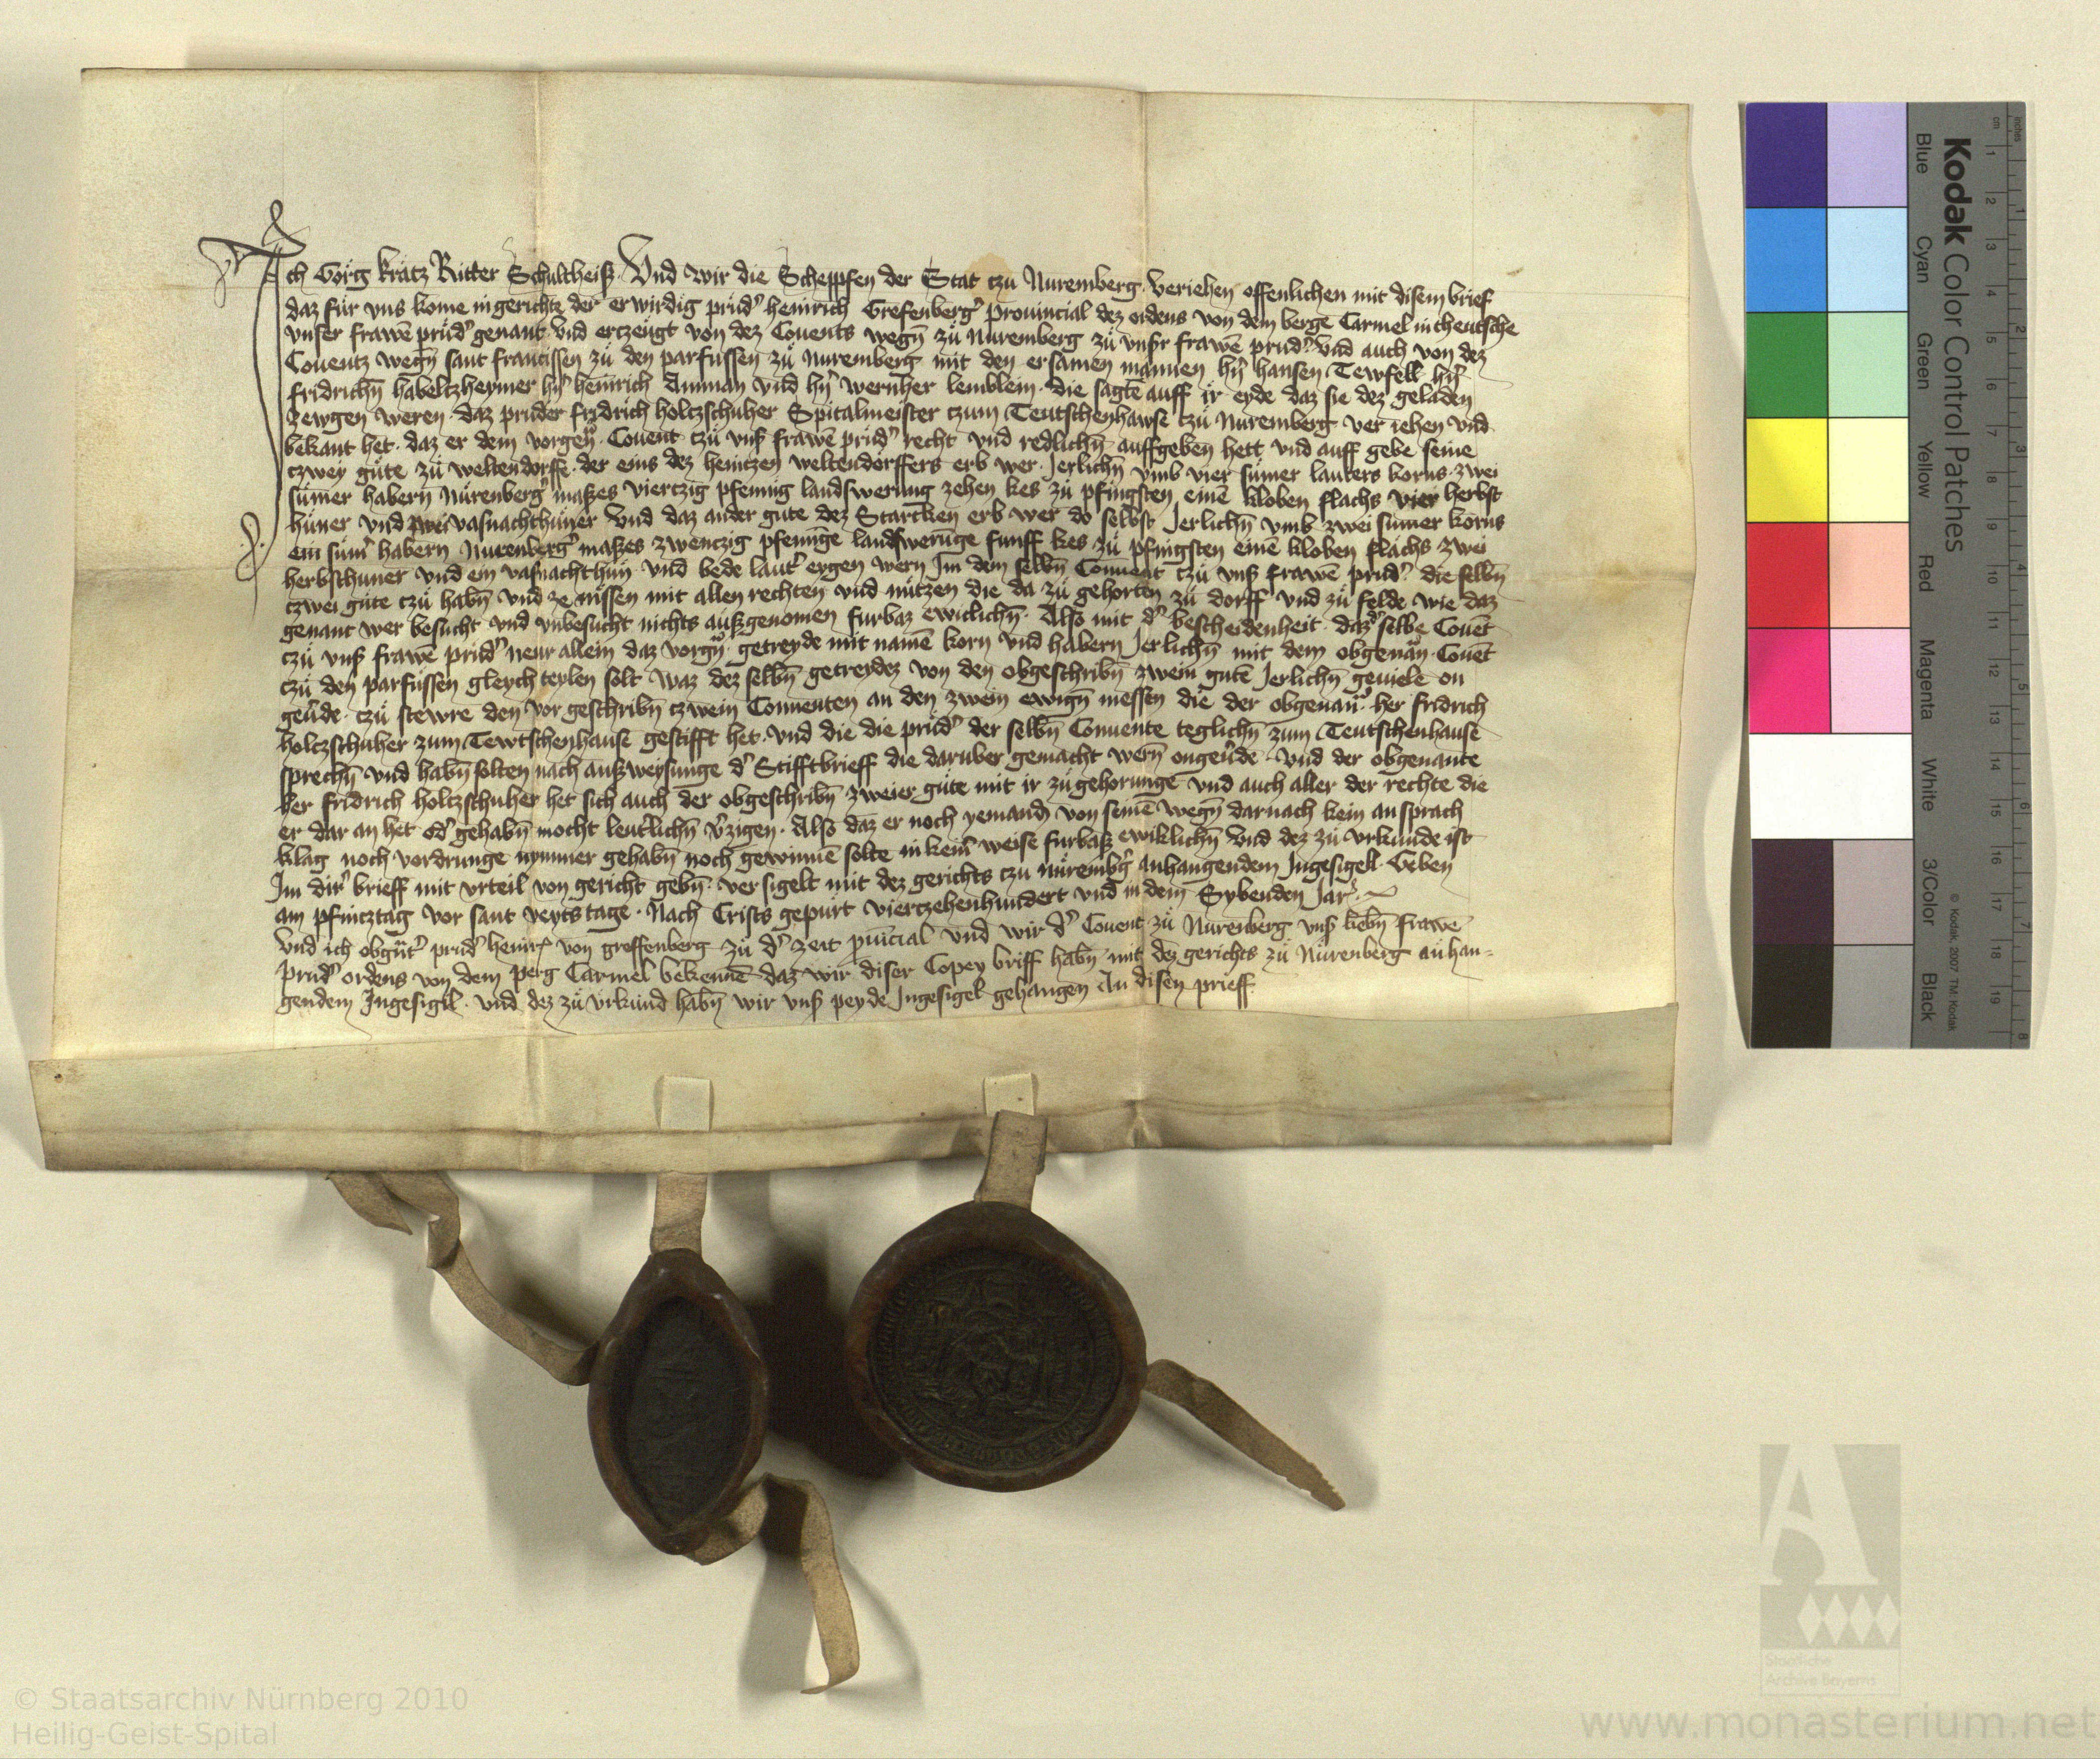 Ich Görg kratz Ritter Schultheiß. Vnd wir die Scheppfen der Stat tzu Nuremberg. Veriehen offenlichen mit disem brief
daz für vns kome in gerichte der erwirdig prüd' heinrich Grefenberg' Prouincial dez ordens von dem berge Carmel in theutsche
vnser frawē prüd' genant vnd ertzeügt von dez Couents wegn̄ zü Nuremberg zü vnsr frawē prud' vnd auch von dez
Couentz wegn̄ sant francissen zü den parfussen zü Nuremberg mit den ersamen mannen hn̄ hansen Tewfell hn̄
fridrichn̄ habeltzheymer hn̄ heinrich Amman vnd hn̄ wernher lemblein. die sagtē auff ir eyde daz sie dez geladen
Zewgen weren. daz pruder fridrich holtzschuher Spitalmeister tzum Teutschenhawse tzü Nuremberg ver iehen vnd
bekant het. daz er dem vorgen̄. Couent tzü vnß frawē prüd' recht vnd redlichn̄ auffgeben hett vnd auff gebe seine
tzwey güte zü weltendorffe. der eins dez heintzen weltendorffers erb wer. Jerlichn̄ vmb vier sümer lauters korns. zwei
sümer habern Nürenberg' maßes viertzig pfennig landswerung zehen kes zü pfingsten einē kloben flachs vier herbst
hüner vnd zwei vasnachthüner vnd daz ander gute dez Starcken erb wer do selbst Jerlichn̄ vmb zwei sümer korns
ein süm' habern Nurenberg' maßes zwentzig pfennige landswerūge funff kes zü pfingsten einē kloben flachs zwei
herbsthüner vnd ein vasnachthün vnd bede laut' eygen wern Im dem selbn̄ Conuent tzü vnß frawē prüd' die selbn̄
tzwei güte tzü habn̄ vnd ze nissen mit allen rechten vnd nützen die da zü gehorten zü dorff vnd zü felde wie daz
genant wer besucht vnd vnbesucht nichts außgenomen furbaz ewiclichn̄. Also mit d' bescheidenheit. daz d' selbe Couēt
tzü vnß frawē prüd' neur allein daz vorgn̄. getreyde mit namē korn vnd habern Jerlichn̄ mit dem obgenan̄. Couēt
tzü den parfussen gleych teylen solt waz dez selbn̄ getreydez von den obgeschribn̄ zwein gutē Jerlichn̄ geuiele on
geu'de. tzü stewre den vor geschribn̄ tzwein Conuenten an den zwein ewign̄ messen die der obgenan̄. her fridrich
holtzschuher zum Tewtschenhause gestifft het. vnd die die prüd' der selbn̄ Conuente teglichn̄ zum Teutschenhause
sprechn̄ vnd habn̄ solten nach außweysunge d' Stifftbrieff die daruber gemacht wern̄ ongeu'de. Vnd der obgenante
her fridrich holtzschuher het sich auch der obgeschribn̄ zweier güte mit ir zügehorunge vnd auch aller der rechte die
er dar an het od' gehabn̄ mocht leut'lichn̄ v'zigen. Also daz er noch yemand von seinē wegn̄ darnach kein an sprach
klag noch vordrunge nymmer gehabn̄ noch gewinnē solte in kein' weise furbaß ewiklichn̄ Vnd dez zü vrkunde ist
Im dir' brieff mit vrteil von gericht gebn̄. ver sigelt mit dez gerichts tzu nürembg' anhangendem Jngesigell. Geben
am pfintztag vor sant veyts tage. Nach Crists gepürt viertzehenhundert vnd in dem Sybenden Jar'.
Vnd ich obgn̄t' prüd' heinr' von greffenberg zü d' zeit pu͞icial vnd wir d' Couent zü Nurenberg vnß liebn̄ frawē
prüd' ordens von dem perg Carmel bekennē daz wir diser Copey briff habn̄ mit dez gerichts zü Nurenberg an han-
gendem Jngesigll. vnd dez zü vrkund habn̄ wir vnß peyde Jngesigel gehangen An disen prieff.
Kodak Color Control Patches
© Kodak, 2007 TM: Kodak
Blue Cyan Green Yellow Red Magenta White 3/Color Black
cm 1 2 3 4 5 6 7 8 9 10 11 12 13 14 15 16 17 18 19
inches 1 2 3 4 5 6 7 8
© Staatsarchiv Nürnberg 2010
Heilig-Geist-Spital
Staatliche
Archive Bayerns
www.monasterium.net